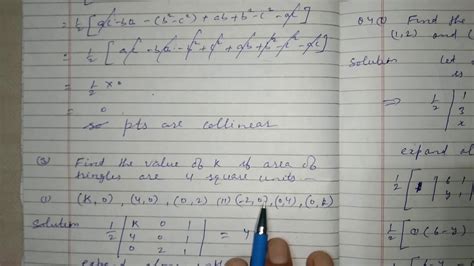 = 1/2 [ac - ba - (b² - c²) + ab + b² - c² - ac]
= 1/2 [ac - ba - b² + c² + ab + b² - c² - ac]
= 1/2 × 0
= 0
so pts are collinear
(3) Find the value of K if area of
triangles are 4 square units -
(i) (K, 0), (4, 0), (0, 2) (ii) (-2, 0), (0, 4), (0, k)
Solution 1/2 | K 0 1 | = 4
| 4 0 1 |
| 0 2 1 |
Q4 (i) Find the
(1, 2) and (
Solution Let
is
⇒ 1/2 | 1
3
x
expand al
1/2 [